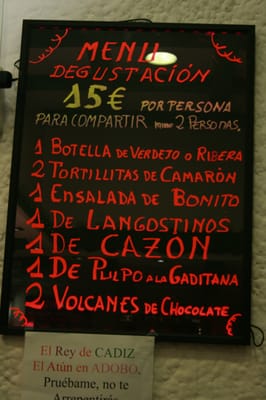 MENU
DEGUSTACIÓN
15€ POR PERSONA
PARA COMPARTIR MINIMO 2 PERSONAS.
1 BOTELLA DE VERDEJO O RIBERA
2 TORTILLITAS DE CAMARÓN
1 ENSALADA DE BONITO
1 DE LANGOSTINOS
1 DE CAZÓN
1 DE PULPO A LA GADITANA
2 VOLCANES DE CHOCOLATE
El Rey de CADIZ
El Atún en ADOBO,
Pruébame, no te
Arrepentirás